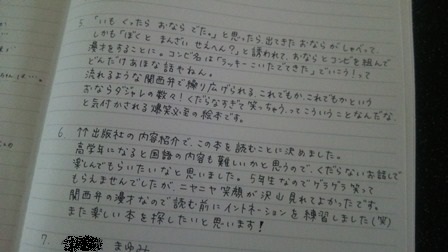 5. 「いも くったら おなら でた。」と思ったら出てきたおならがしゃべって、
しかも「ぼくと まんざい せえへん?」と誘われて、おならとコンビを組んで
漫才をすることに。コンビ名は「ラッキーこいたでてきた」でいこう!って
どんだけあほな話やねん。
流れるような関西弁で繰り広げられる、これでもか、これでもかという
おならダジャレの数々!くだらなすぎて笑っちゃうってこういうことなんだな、
と気付かされる爆笑必至の絵本です。
6. 竹出版社の内容紹介で、この本を読むことに決めました。
高学年になると国語の内容も難しいかと思うので、くだらないお話で
楽しんでもらいたいなと思いました。5年生なのでゲラゲラ笑って
もらえませんでしたが、ニヤニヤ笑顔が沢山見れてよかったです。
関西弁の漫才なので読む前にイントネーションを練習しました(笑)
また楽しい本を探したいと思います!
7. まゆみ